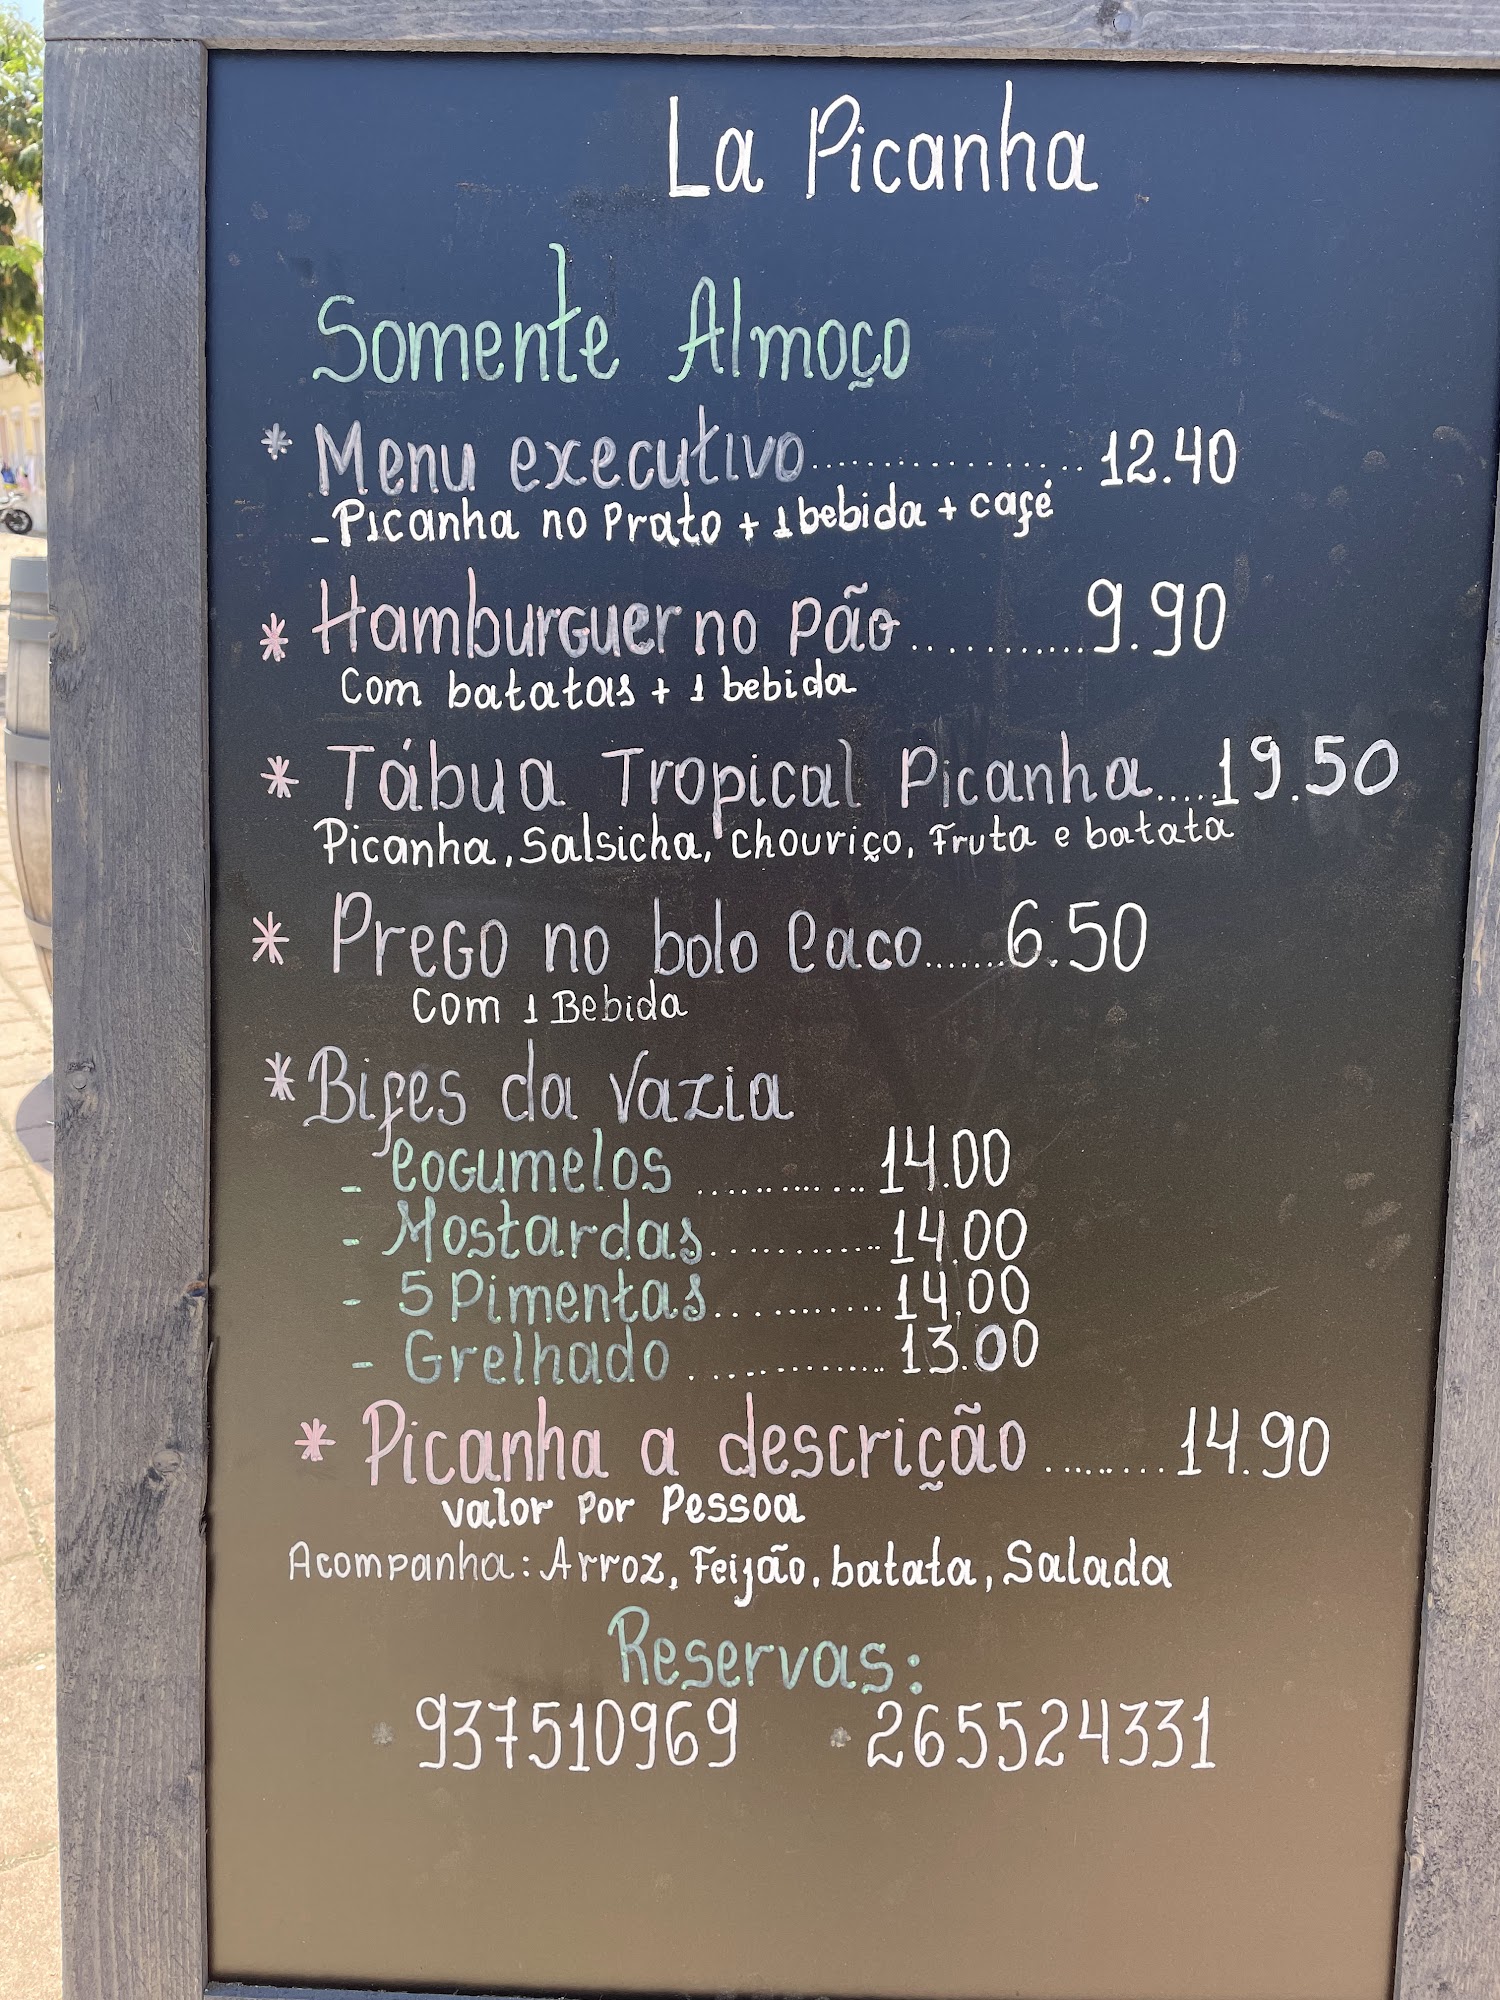 La Picanha
Somente Almoço
* Menu executivo.................... 12.40
- Picanha no Prato + 1 bebida + café
* Hamburguer no pão............9.90
Com batatas + 1 bebida
* Tábua Tropical Picanha.....19.50
Picanha, Salsicha, chouriço, Fruta e batata
* Prego no bolo Caco.......6.50
Com 1 Bebida
* Bifes da Vazia
- Cogumelos ............ 14.00
- Mostardas............ 14.00
- 5 Pimentas............ 14.00
- Grelhado ............ 13.00
* Picanha a descrição ........ 14.90
Valor por Pessoa
Acompanha: Arroz, Feijão, batata, Salada
Reservas:
* 937510969 * 265524331